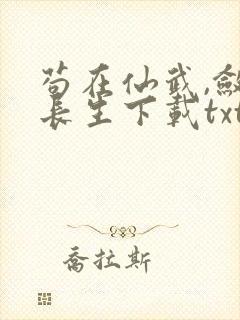 苟在仙武,斂
長生下載txt
喬拉斯